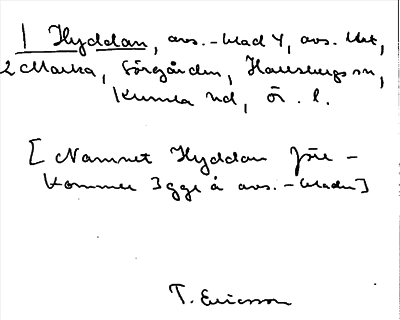 1 Hyddan, avs.-blad 4, avs. Utt,
2 Marka, Sörgården, Hallsbergs sn,
Kumla hd, Ör. l.
[Namnet Hyddan före-
kommer 3 ggr å avs.-bladen]
T. Ericsson